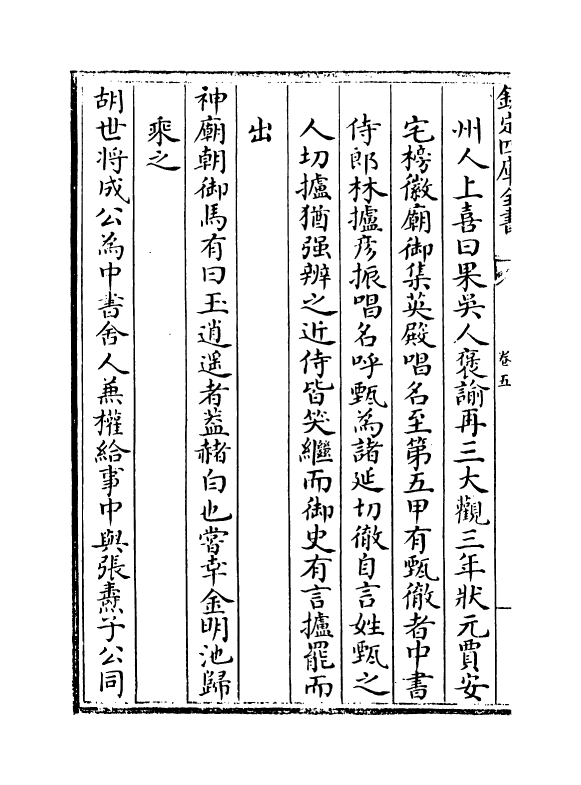 欽定四庫全書
卷五
州人上喜曰果吳人褒諭再三大觀三年狀元賈安
宅榜徽廟御集英殿唱名至第五甲有甄徹者中書
侍郎林攄彦振唱名呼甄為諸延切徹自言姓甄之
人切攄猶强辨之近侍皆笑繼而御史有言攄罷而
出
神廟朝御馬有曰玉逍遥者葢赭白也嘗幸金明池歸
乘之
胡世将成公為中書舍人兼權給事中與張燾子公同